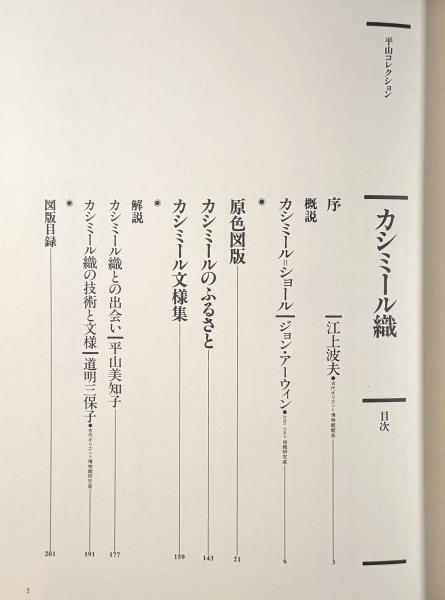 平山コレクション
カシミール織
目次
序 江上波夫●古代オリエント博物館館長 3
概説
カシミール=ショール ジョン・アーウィン 6
●
原色図版 21
カシミールのふるさと 143
カシミール文様集 159
●
解説
カシミール織との出会い 平山美知子 177
カシミール織の技術と文様 道明三保子●古代オリエント博物館研究員 191
●
図版目録 201
5